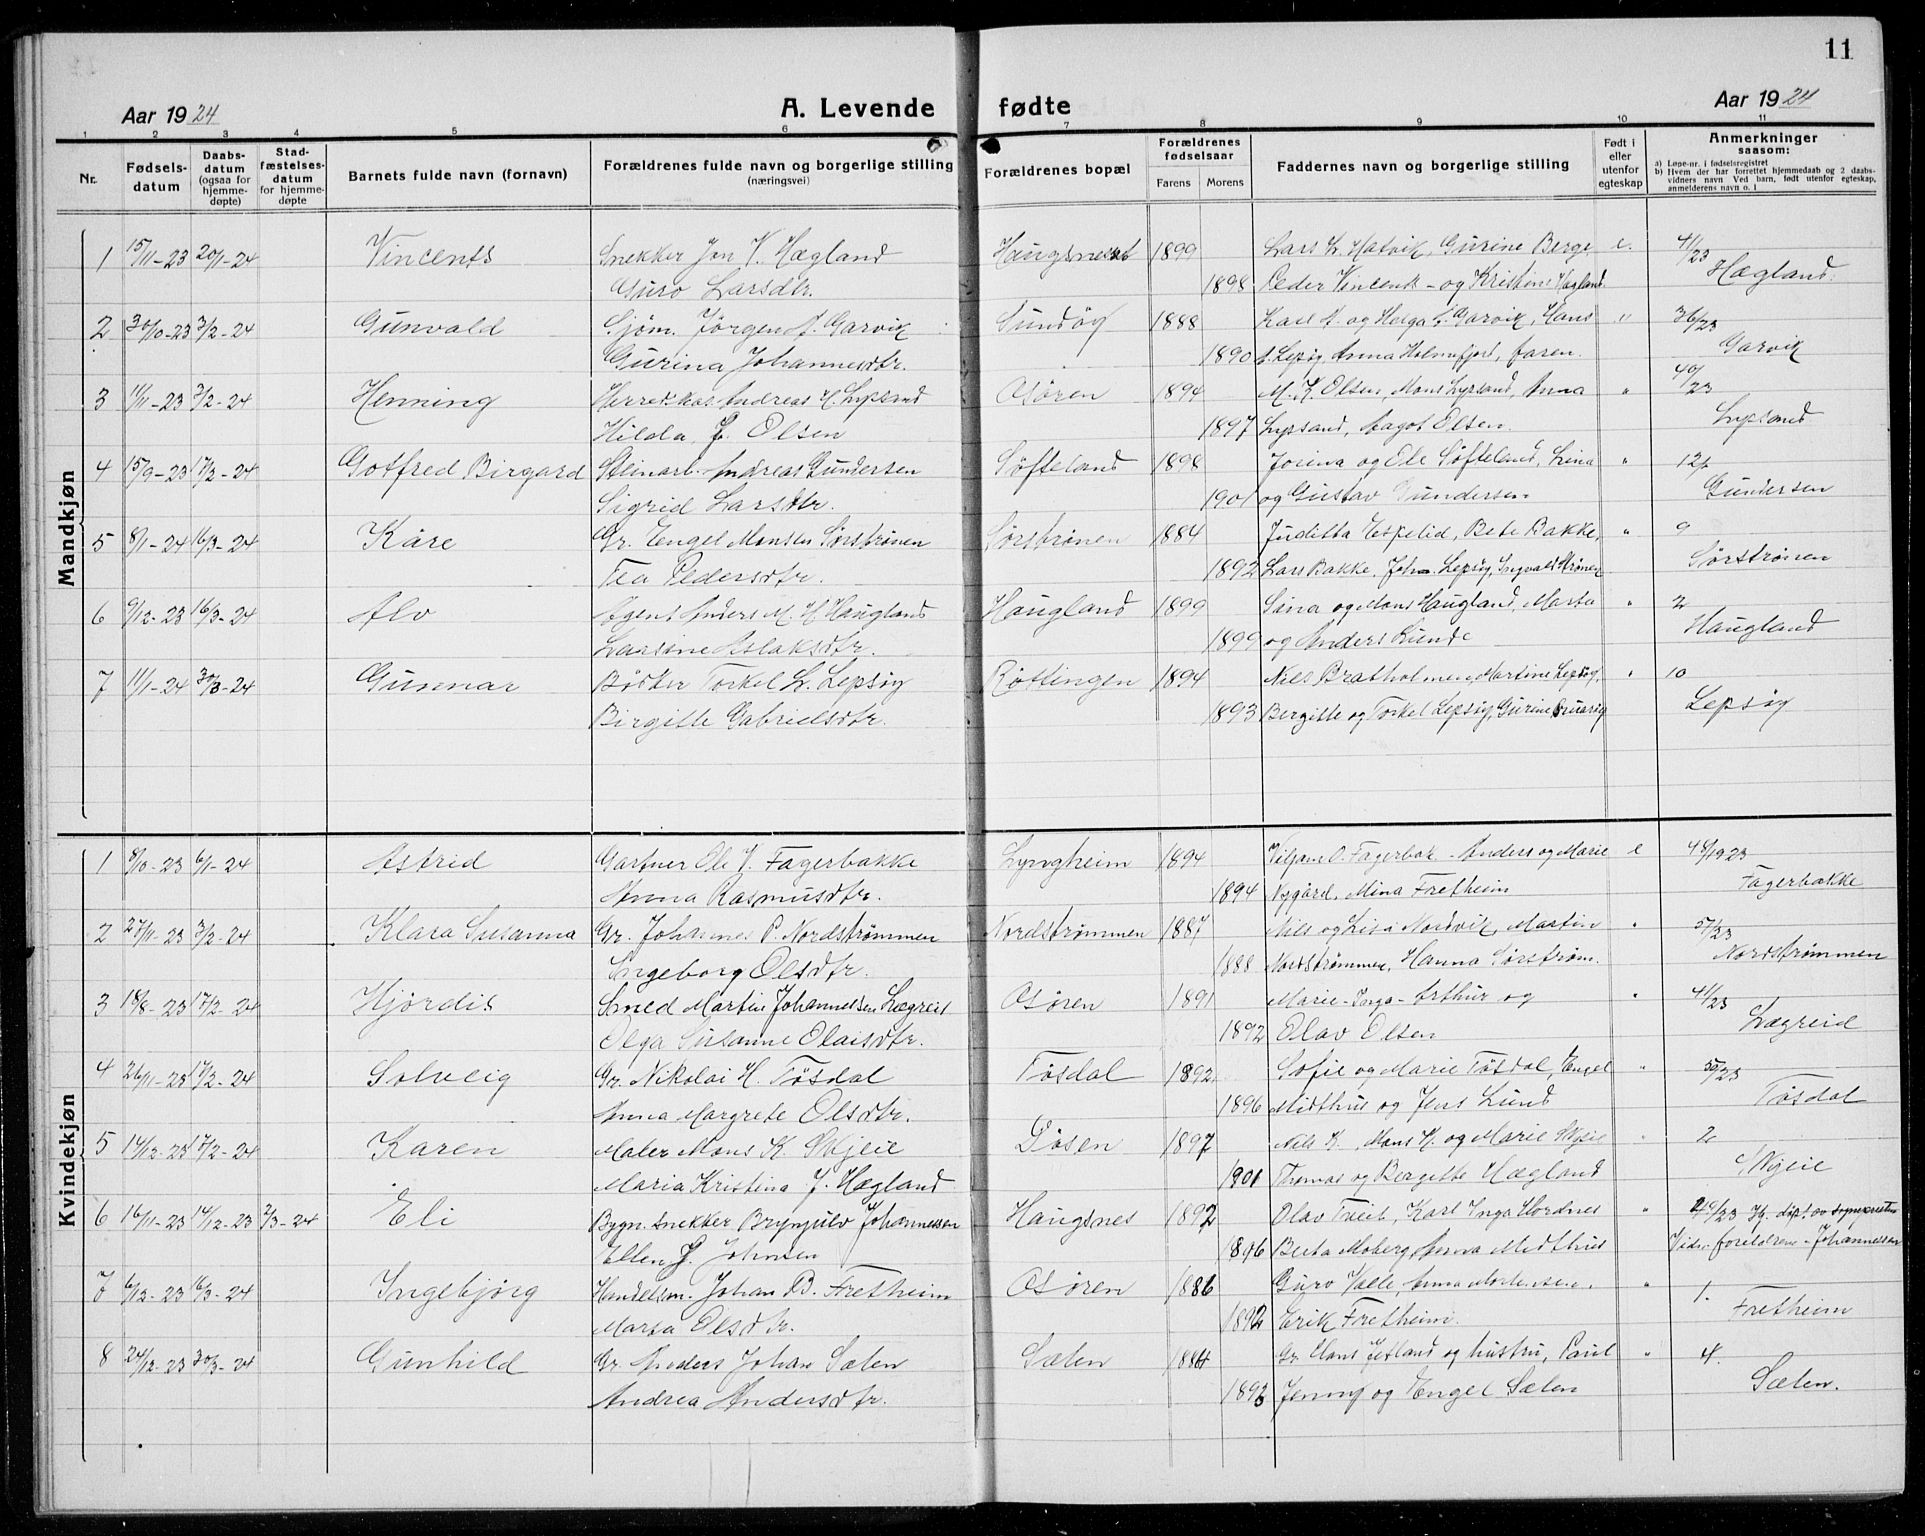 11
Aar 1924 A. Levende fødte Aar 1924
1 2 3 4 5 6 7 8 9 10 11
Nr. Fødsels-datum Daabs-datum (ogsaa for hjemme-døpte) Stad-fæstelses-datum for hjemme-døpte Barnets fulde navn (fornavn) Forældrenes fulde navn og borgerlige stilling (næringsvei) Forældrenes bopæl Forældrenes fødselsaar Farens Morens Faddernes navn og borgerlige stilling Født i eller utenfor egteskap Anmerkninger saasom:
a) Løpe-nr. i fødselsregistret
b) Hvem der har forrettet hjemmedaab og 2 daabs-vidners navn Ved barn, født utenfor egteskap, anmelderens navn o. l
Mandkjøn
1 15/11-23 20/1-24 Vincents Snekker Jon V. Hægland Haugsneset 1899 Lars L. Hatvik, Gurine Berge e. 41/23
Guro Larsdtr. 1898 Peder Vincents- og Kristine Hægland Hægland.
2 30/10-23 3/2-24 Gunvald Sjöm. Jørgen A. Garvik Sundöy 1888 Karl A. og Helga A. Garvik, Hans " 36/23
Gurina Johannesdtr. 1890 A. Lepsöy, Anna Holmefjord, faren. Garvik
3 11/11-23 3/2-24 Henning Herredskas. Andreas M. Lypsund Osören 1894 M. K. Olsen, Mons Lysand, Anna " 40/23
Hilda J. Olsen 1897 Lypsand, Aagot Olsen. Lypsund
4 15/9-23 17/2-24 Gotfred Birgard Steinarb. Andreas Gundersen Søfteland 1898 Jorina og Ole Søfteland, Lina " 12/
Sigrid Larsdtr. 1901 og Gustav Gundersen Gundersen
5 8/1-24 16/3-24 Kåre Gr. Engel Monsen Sørstrønen Sørstrønen 1884 Juditta Espelid, Bete Bakke, " 9
Tea Pedersdtr. 1892 Lars Bakke, Joh. Lepsöy, Ingvald Strönen Sørströnen
6 9/12-23 16/3-24 Alv Agent Anders M. H. Haugland Haugland 1899 Sina og Mons Haugland, Marta " 2
Laurine Aslaksdtr. 1899 og Anders Lunde Haugland
7 11/1-24 30/3-24 Gunnar Bödker Torkel L. Lepsöy Røttingen 1894 Nils Bratholmen, Martine Lepsöy, " 10
Birgitte Gabrielsdtr. 1893 Bergitte og Torkel Lepsöy, Gurine Bruaröy Lepsöy
Kvindekjøn
1 8/10-23 6/1-24 Astrid Gartner Ole V. Fagerbakke Lyngheim 1894 Viljam O. Fagerbak- Anders og Marie e 48/1923
Anna Rasmusdtr. 1894 Nygård, Mina Fretheim Fagerbakke
2 27/11-23 3/2-24 Klara Susanna Gr. Johannes P. Nordstrømmen Nordstrømmen 1887 Nils og Lisa Nordvik, Martin " 57/23
Ingeborg Olsdtr. 1888 Nordströmmen, Hanna Sørström. Nordstrømmen
3 18/8-23 17/2-24 Hjørdis Smed Martin Johannessen Lægreid Osören 1891 Marie- Inga- Arthur og " 41/23
Olga Susanne Olaisdtr. 1892 Olav Olsen Lægreid
4 26/11-23 17/2-24 Solveig Gr. Nikolai H. Tøsdal Tøsdal 1892 Sofie og Marie Tøsdal, Engel " 55/23
Anna Margrete Olsdtr. 1896 Midthus og Jens Lund Tøsdal
5 14/12-23 17/2-24 Karen Maler Mons K. Skjeie Døsen 1897 Nils K., Mons H. og Marie Skjeie " 2
Maria Kristina J. Hægland 1901 Thomas og Bergitte Hægland Skjeie
6 16/11-23 14/12-23 2/3-24 Eli Bygn. snekker Brynjulv Johannessen Haugsnes 1892 Olav Tveit, Karl Inga Hordnes " 49/23 Hj. döpt av sognepresten
Ellen J. Johnsen 1896 Berta Moberg, Anna Midthus Vidn. foreldrene- Johannessen
7 6/12-23 16/3-24 Ingebjørg Handelsm. Johan B. Fretheim Osören 1886 Guro Valle, Anna Mortensen, " 1.
Marta Olsdtr. 1892 Erik Fretheim. Fretheim
8 24/12-23 30/3-24 Gunhild Gr. Anders Johan Sælen Sælen 1884 Gr. Hans Jetland og hustru, Paul " 4.
Andrea Andersdtr. 1893 Jenny og Engel Sælen Sælen.